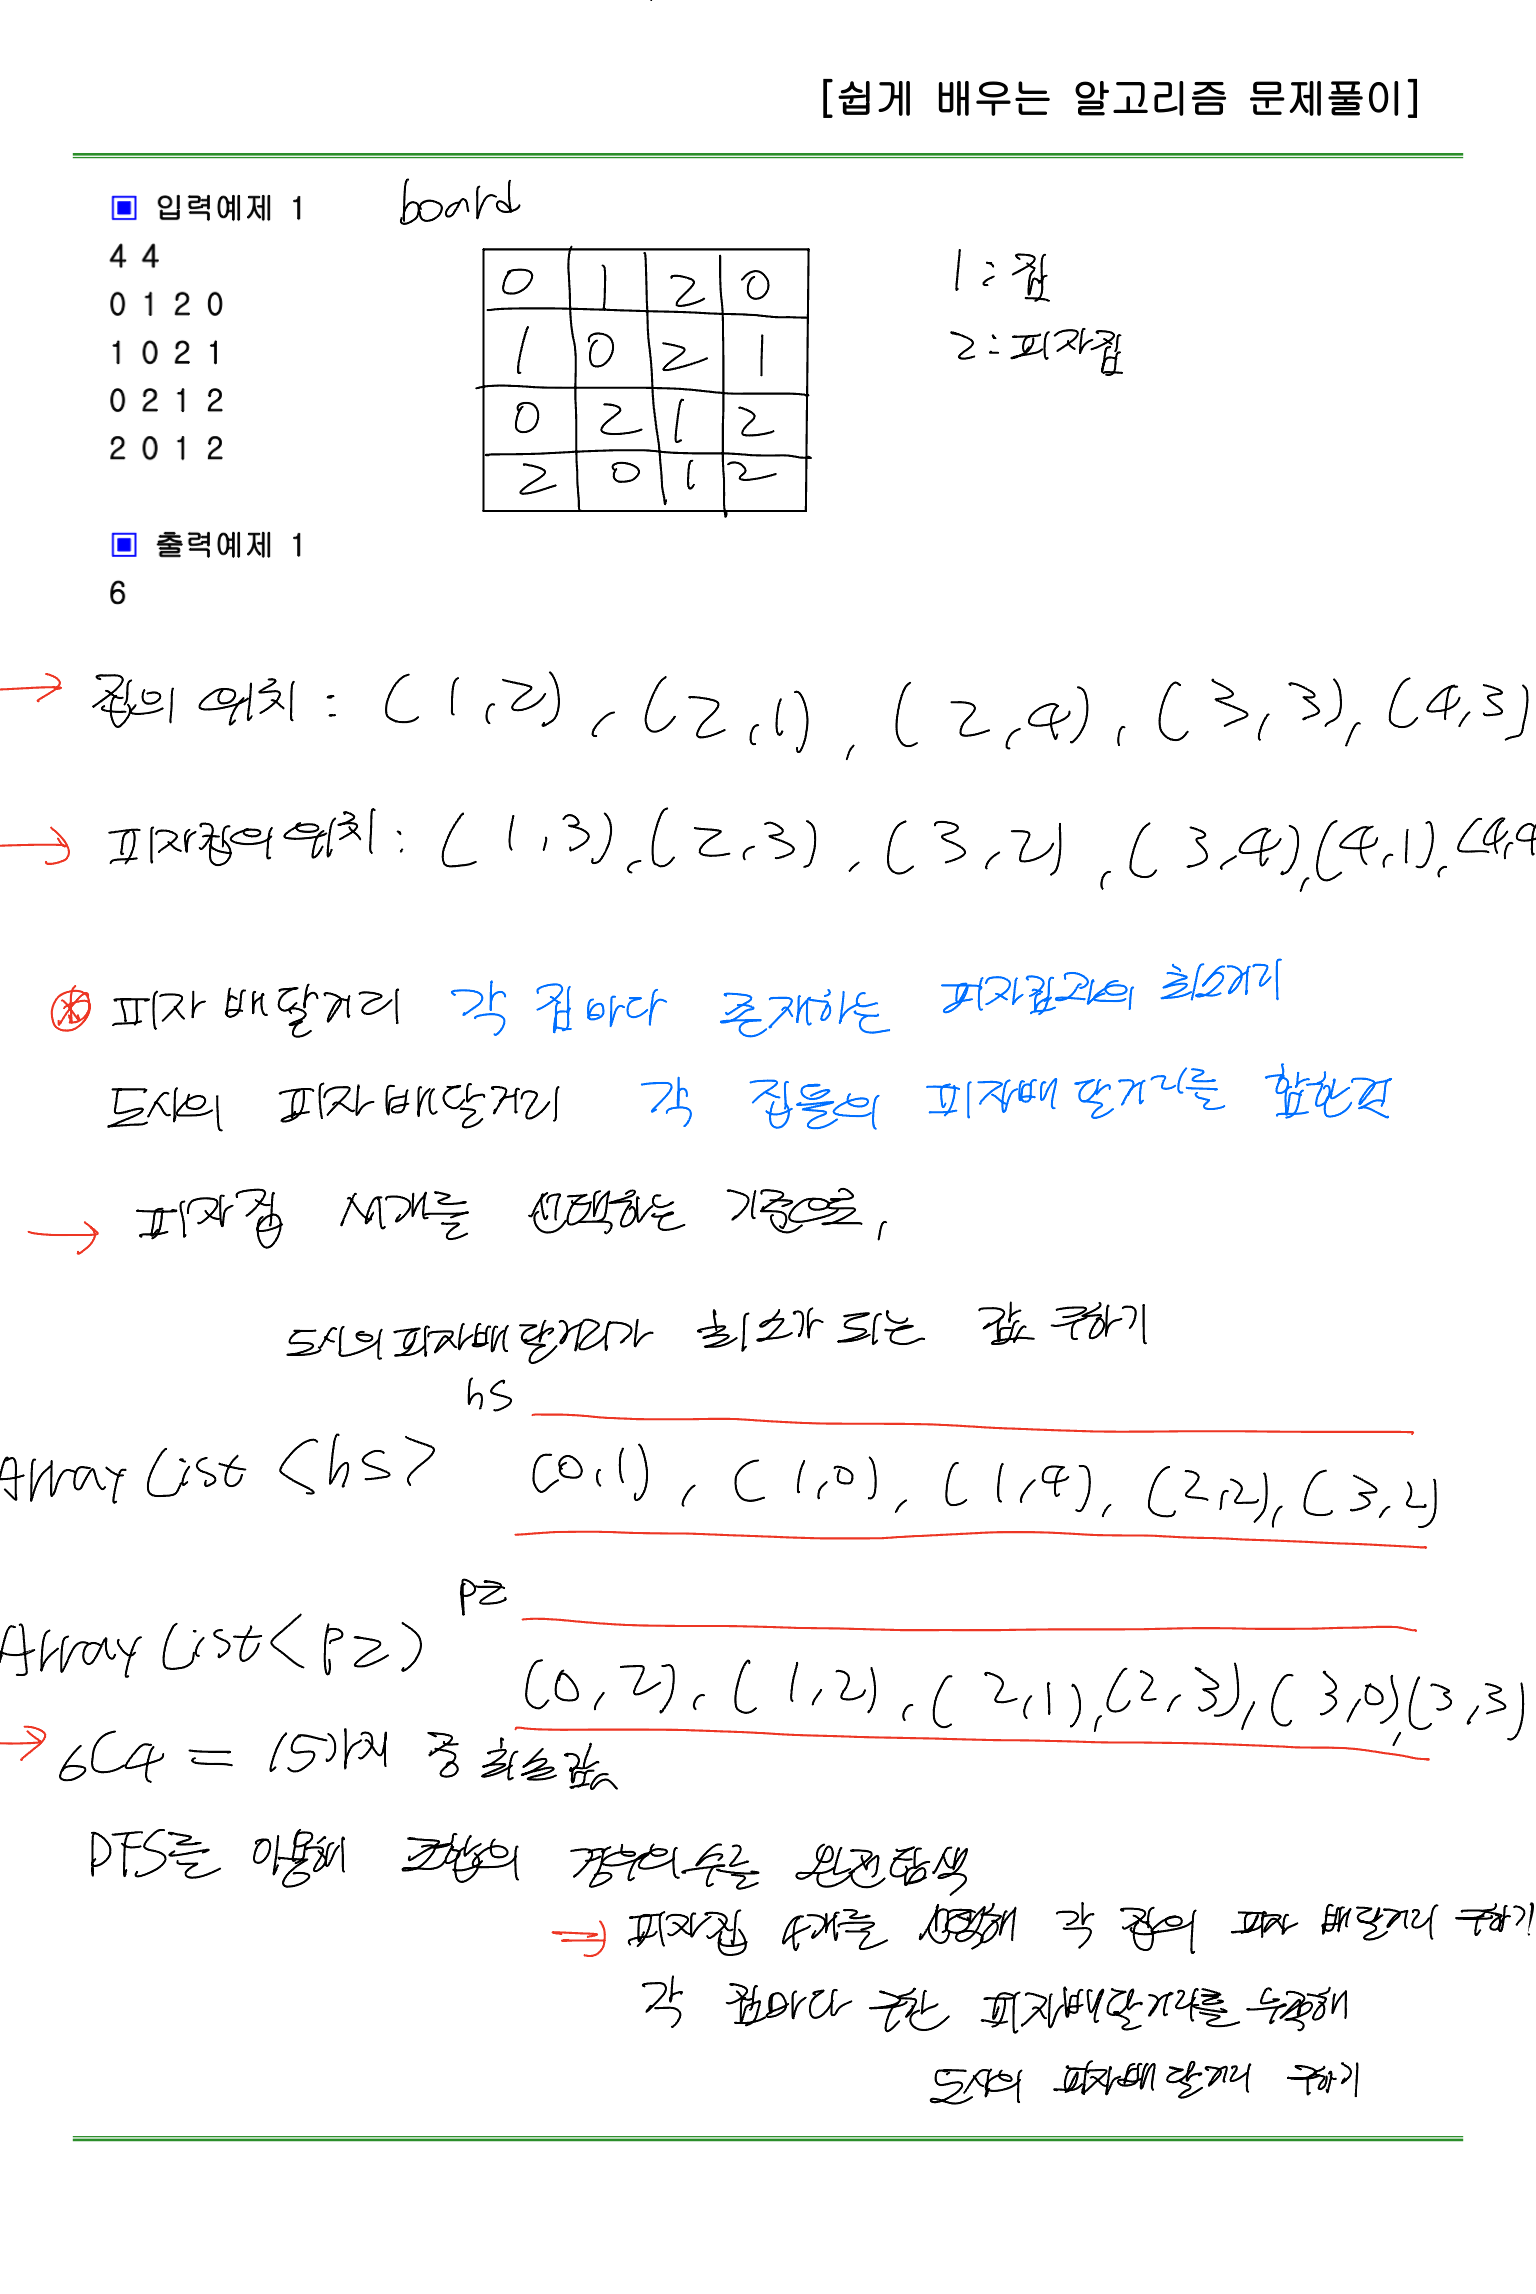 [쉽게 배우는 알고리즘 문제풀이]
▣ 입력예제 1
board
4 4
0 1 2 0
1 0 2 1
0 2 1 2
2 0 1 2
0 1 2 0
1 0 2 1
0 2 1 2
2 0 1 2
1 : 집
2 : 피자집
▣ 출력예제 1
6
→ 집의 위치 : (1,2), (2,1), (2,4), (3,3), (4,3)
→ 피자집의 위치 : (1,3), (2,3), (3,2), (3,4), (4,1), (4,4
피자 배달거리 각 집마다 존재하는 피자집과의 최소거리
도시의 피자배달거리 각 집들의 피자배달거리를 합한것
→ 피자집 세개를 선택하는 기준으로,
도시의 피자배달거리가 최소가 되는 값 구하기
hs
ArrayList <hs> (0,1), (1,0), (1,4), (2,2), (3,2)
pz
ArrayList<pz) (0,2), (1,2), (2,1), (2,3), (3,0), (3,3)
→ 6C4 = 15가지 중 최솔값
DFS를 이용해 조합의 경우의 수를 완전탐색
⇒ 피자집 4개를 선택해 각 집의 피자 배달거리 구하기
각 집마다 구한 피자배달거리를 누적해
도시의 피자배달거리 구하기